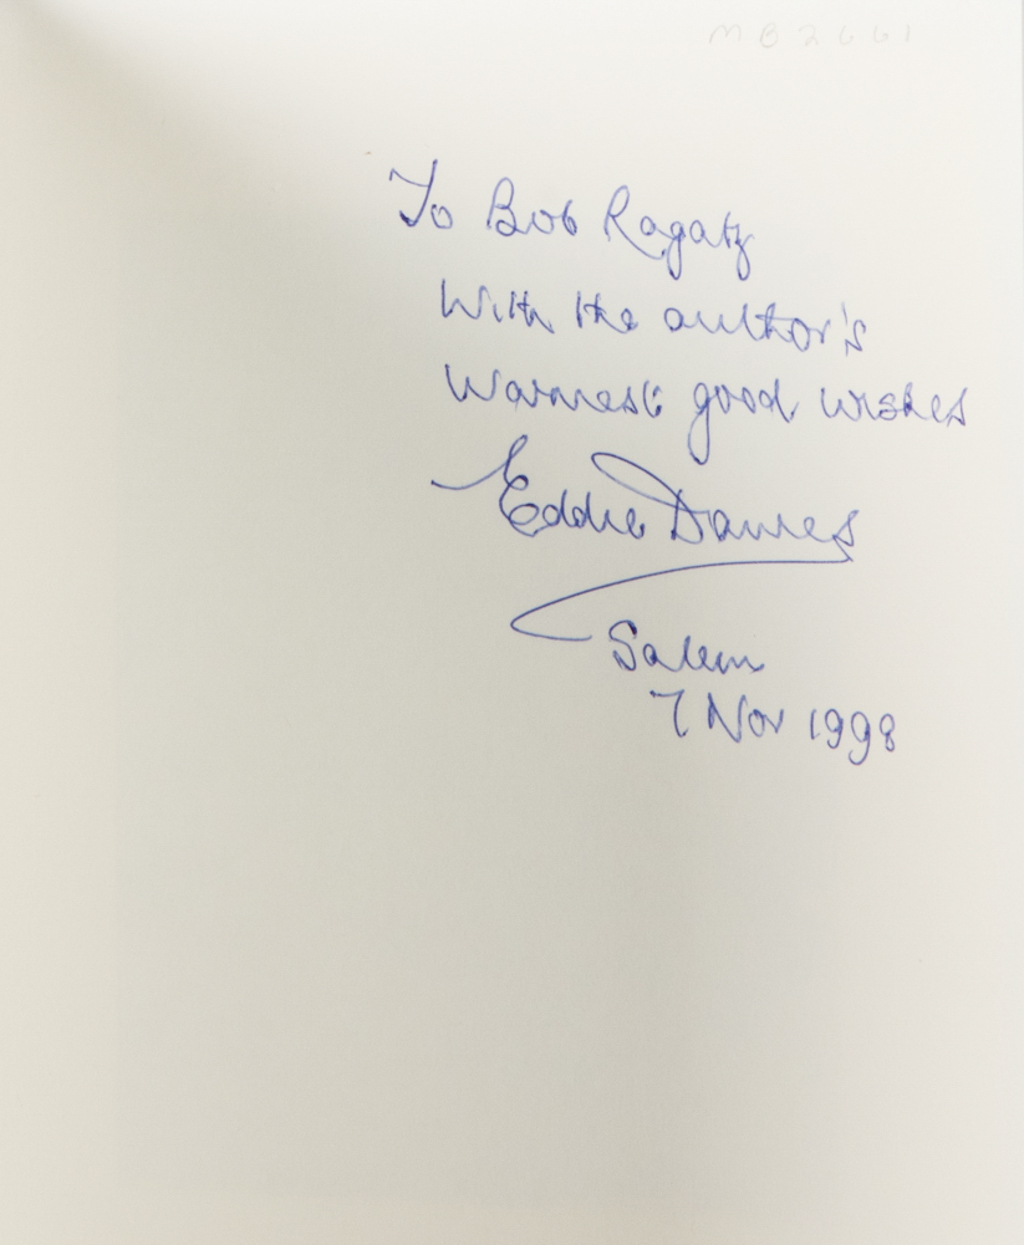 MB2661
To Bob Ragatz
With the author's
Warmest good wishes
Eddie Dawes
Salem
7 Nov 1998